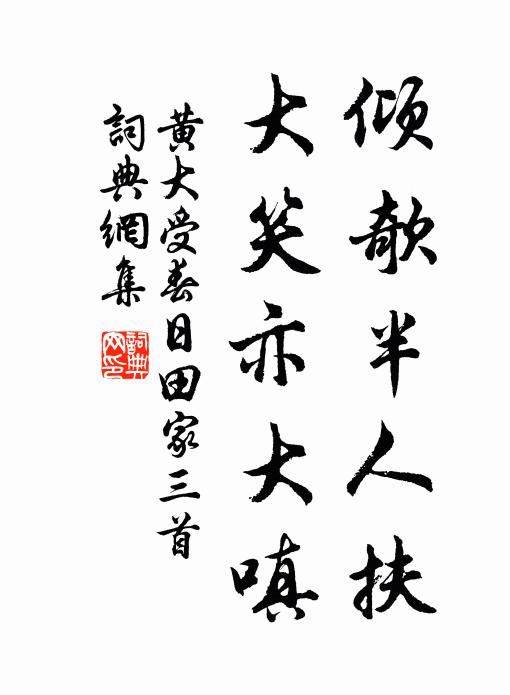 傾欹半人扶
大笑亦大嗔
黃大受春日田家三首
詞典網集
詞典網印